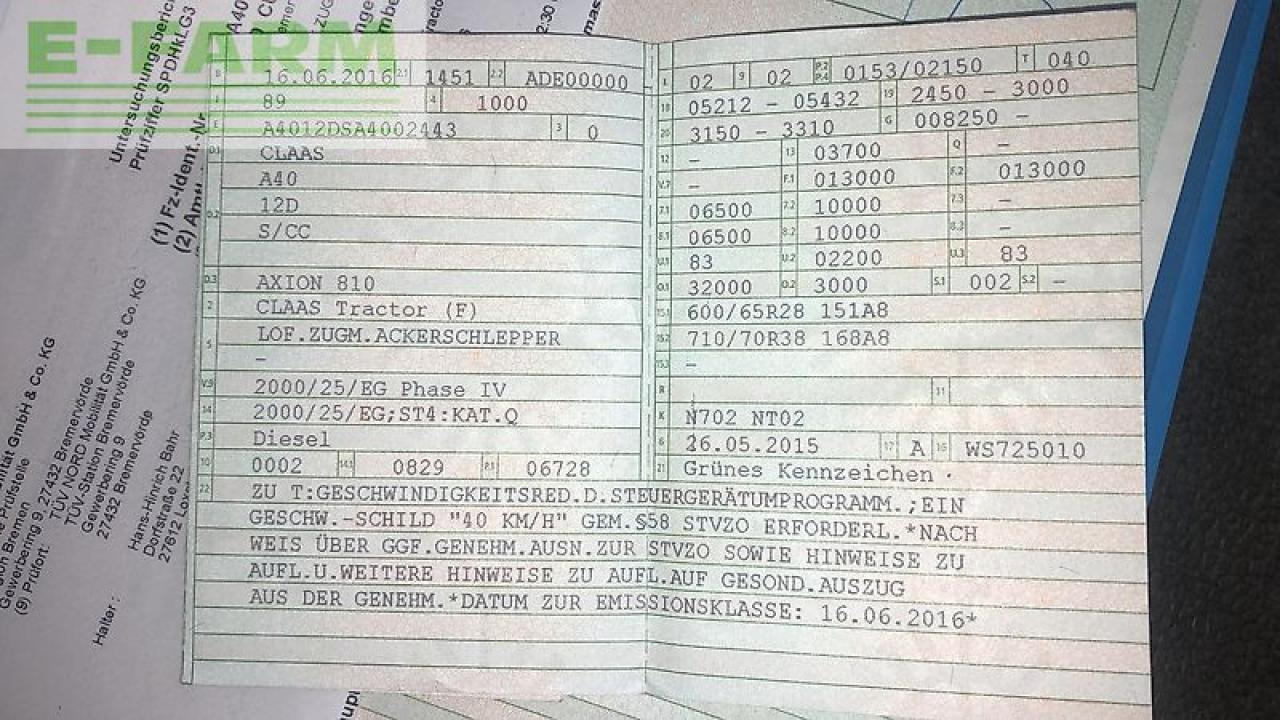 E-FARM
Untersuchungsberich
Prüfziffer SPDHKLG3
(1) Fz-Ident.-Nr.
B 16.06.2016 2.1 1451 2.2 ADE00000
J 89 4 1000
E A4012DSA4002443 3 0
D.1 CLAAS
A40
D.2 12D
S/CC
D.3 AXION 810
2 CLAAS Tractor (F)
5 LOF.ZUGM.ACKERSCHLEPPER
–
V.9 2000/25/EG Phase IV
14 2000/25/EG;ST4:KAT.Q
P.3 Diesel
10 0002 14.1 0829 P.1 06728
L 02 9 02 P.2 P.4 0153/02150 T 040
18 05212 – 05432 19 2450 – 3000
20 3150 – 3310 G 008250 –
12 – 13 03700 Q –
V.7 – F.1 013000 F.2 013000
7.1 06500 7.2 10000 7.3 –
8.1 06500 8.2 10000 8.3 –
U.1 83 U.2 02200 U.3 83
O.1 32000 O.2 3000 S.1 002 S.2 –
15.1 600/65R28 151A8
15.2 710/70R38 168A8
15.3 –
R 11
K N702 NT02
6 26.05.2015 17 A 16 WS725010
21 Grünes Kennzeichen
22 ZU T:GESCHWINDIGKEITSRED.D.STEUERGERÄTUMPROGRAMM.;EIN
GESCHW.-SCHILD "40 KM/H" GEM.§58 STVZO ERFORDERL.*NACH
WEIS ÜBER GGF.GENEHM.AUSN.ZUR STVZO SOWIE HINWEISE ZU
AUFL.U.WEITERE HINWEISE ZU AUFL.AUF GESOND.AUSZUG
AUS DER GENEHM.*DATUM ZUR EMISSIONSKLASSE: 16.06.2016*
Gewerbering 9, 27432 Bremervörde
TÜV NORD Mobilität GmbH & Co. KG
TÜV-Station Bremervörde
Gewerbering 9
27432 Bremervörde
(9) Prüfort:
Hans-Hinrich Bahr
Dorfstraße 22
27612
Halter :